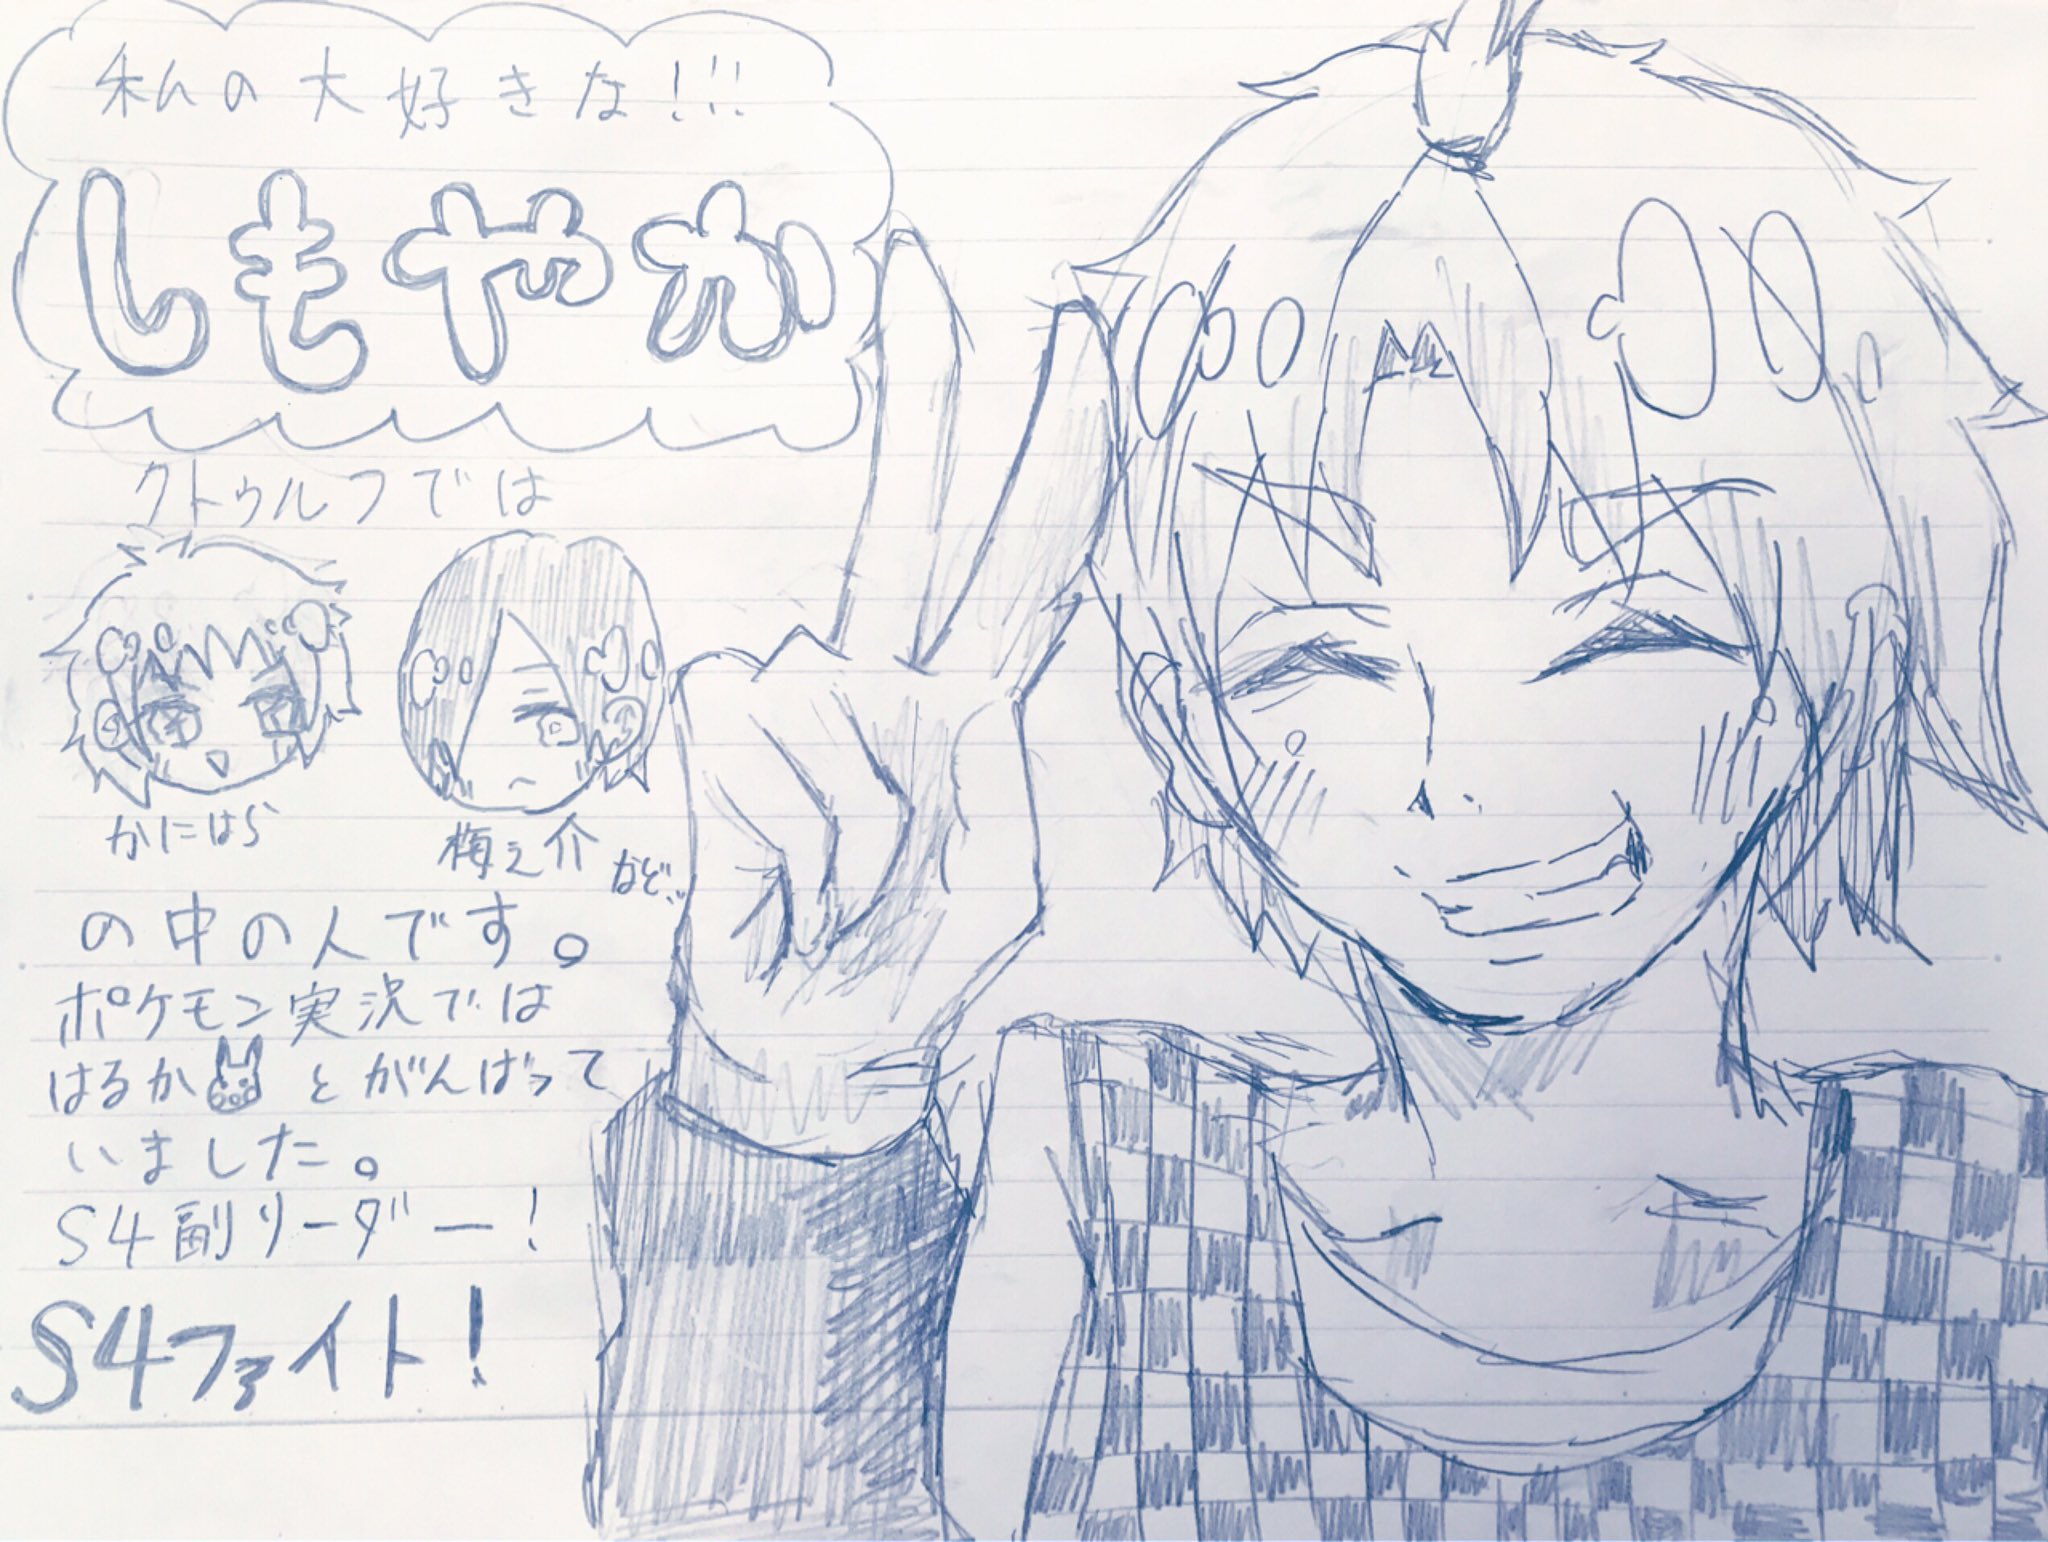 私の大好きな!!!
しもやか
クトゥルフでは
かにはら
梅之介 など..
の中の人です。
ポケモン実況では
はるか と がんばって
いました。
S4副リーダー!
S4ファイト!